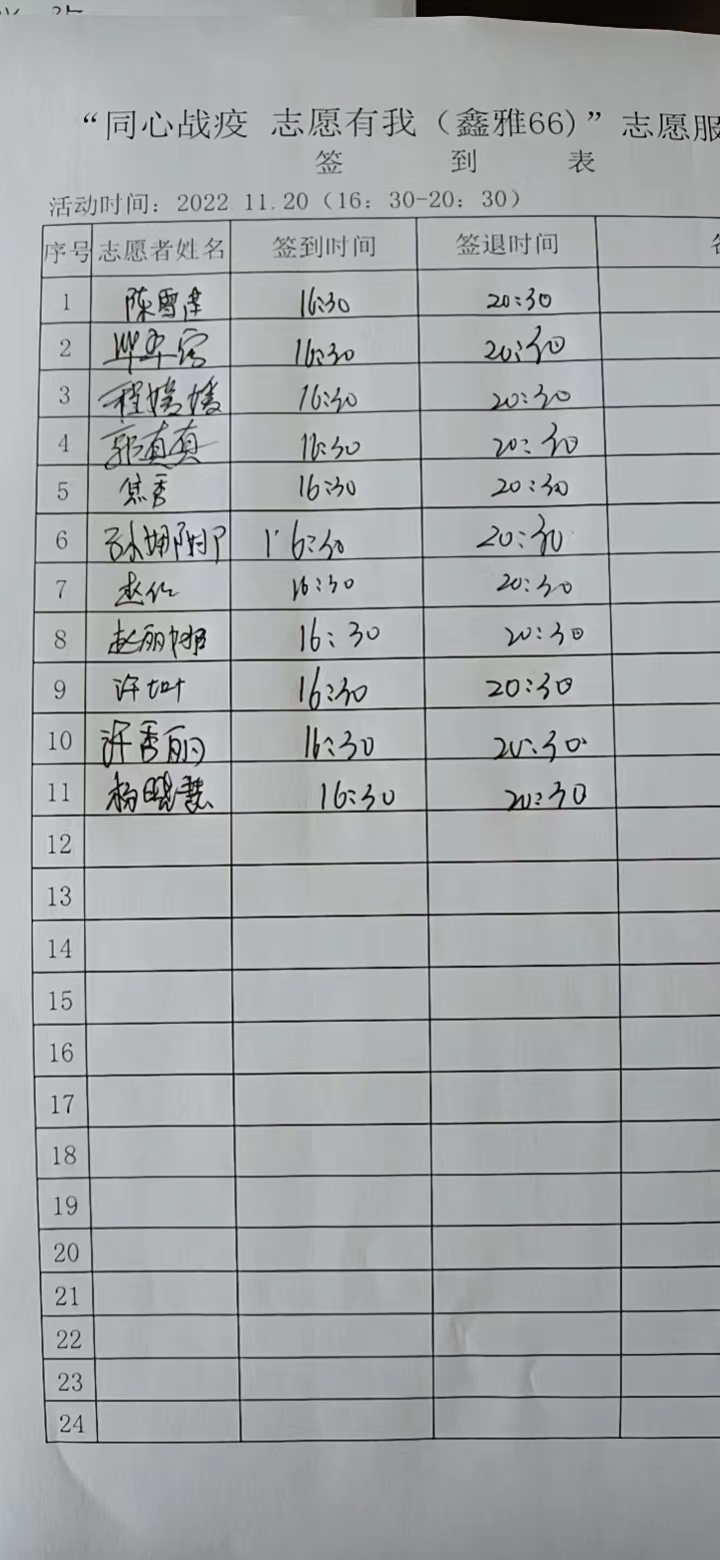 “同心战疫 志愿有我（鑫雅66)”志愿服
签 到 表
活动时间：2022 11.20（16：30-20：30）
序号 志愿者姓名 签到时间 签退时间
1 陈雪 16:30 20:30
2 16:30 20:30
3 程媛媛 16:30 20:30
4 郭真真 16:30 20:30
5 焦香 16:30 20:30
6 16:30 20:30
7 赵 16:30 20:30
8 赵丽娜 16:30 20:30
9 许 16:30 20:30
10 许秀丽 16:30 20:30
11 杨晓慧 16:30 20:30
12
13
14
15
16
17
18
19
20
21
22
23
24